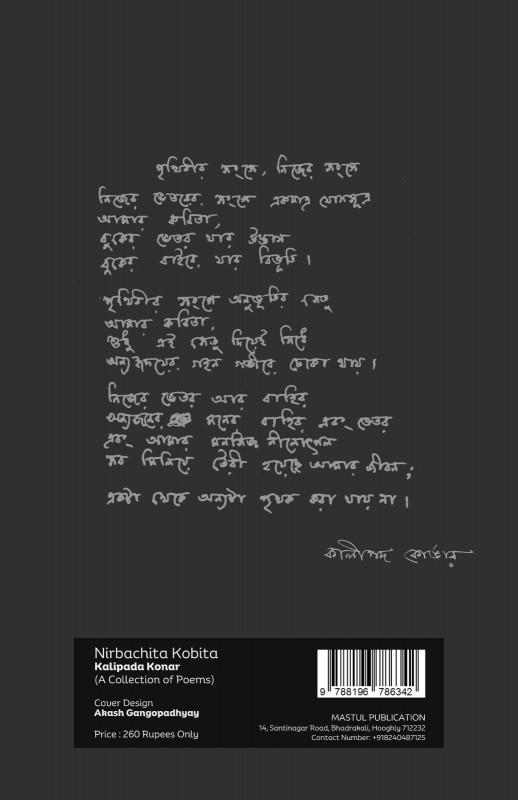 পৃথিবীর সংগে, নিজের সংগে
নিজের ভেতরের সংগে একমাত্র যোগসূত্র
আমার কবিতা,
বুকের ভেতর যার উদ্ভাস
বুকের বাইরে যার বিভূতি।
পৃথিবীর সংগে অনুভূতির সেতু
আমার কবিতা,
শুধু এই সেতু দিয়েই সিধে
অন্য হৃদয়ের গহন গভীরে ঢোকা যায়।
নিজের ভেতর আর বাহির
অন্যজনের মনের বাহির এবং ভেতর
এবং আমার মনসিজ নীলোৎপল
সব মিলিয়ে তৈরী হয়েছে আমার জীবন;
একটা থেকে অন্যটা পৃথক করা যায় না।
কালীপদ কোঙার
Nirbachita Kobita
Kalipada Konar
(A Collection of Poems)
Cover Design
Akash Gangopadhyay
Price : 260 Rupees Only
9 788196 786342
MASTUL PUBLICATION
14, Santinagar Road, Bhadrakali, Hooghly 712232
Contact Number: +918240487125